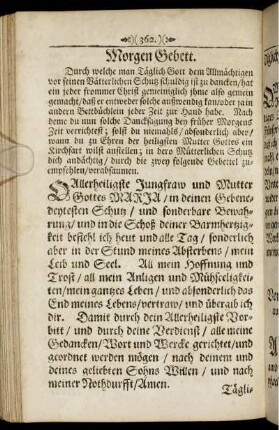 )( 362. )(
Morgen Gebett.
Durch welche man Täglich Gott dem Allmächtigen
vor seinen Vätterlichen Schutz schuldig ist zu dancken/hat
ein jeder frommer Christ gemeiniglich jhme also gemein
gemacht/daß er entweder solche außwendig kan/oder ja in
andern Bettbüchlen jeder Zeit zur Hand habe. Nach
deme du nun solche Dancksagung den früher Morgens
Zeit verrichtest; solst du niemahls/absonderlich aber/
wann du zu Ehren der heiligsten Mutter Gottes ein
Kirchfart wilst anstellen; in dero Mütterlichen Schutz
dich andächtig/durch die zwey folgende Gebettel zu-
empfehlen/verabsaumen.
O Allerheiligste Jungfraw und Mutter
Gottes MARJA/in deinen Gebene-
deytesten Schutz/ und sonderbare Bewah-
rung/und in die Schoß deiner Barmhertzig-
keit befehl ich heut und alle Tag/sonderlich
aber in der Stund meines Absterbens/mein
Leib und Seel. All mein Hoffnung und
Trost/all mein Anligen und Mühseeligkei-
ten/mein gantzes Leben/und absonderlich das
End meines Lebens/vertraw/und übergib ich
dir. Damit durch dein Allerheiligste Vor-
bitt/und durch deine Verdienst/alle meine
Gedancken/Wort und Wercke gerichtet/und
geordnet werden mögen/nach deinem und
deines geliebten Sohns Willen/und nach
meiner Nothdurfft/Amen.
Tägli-